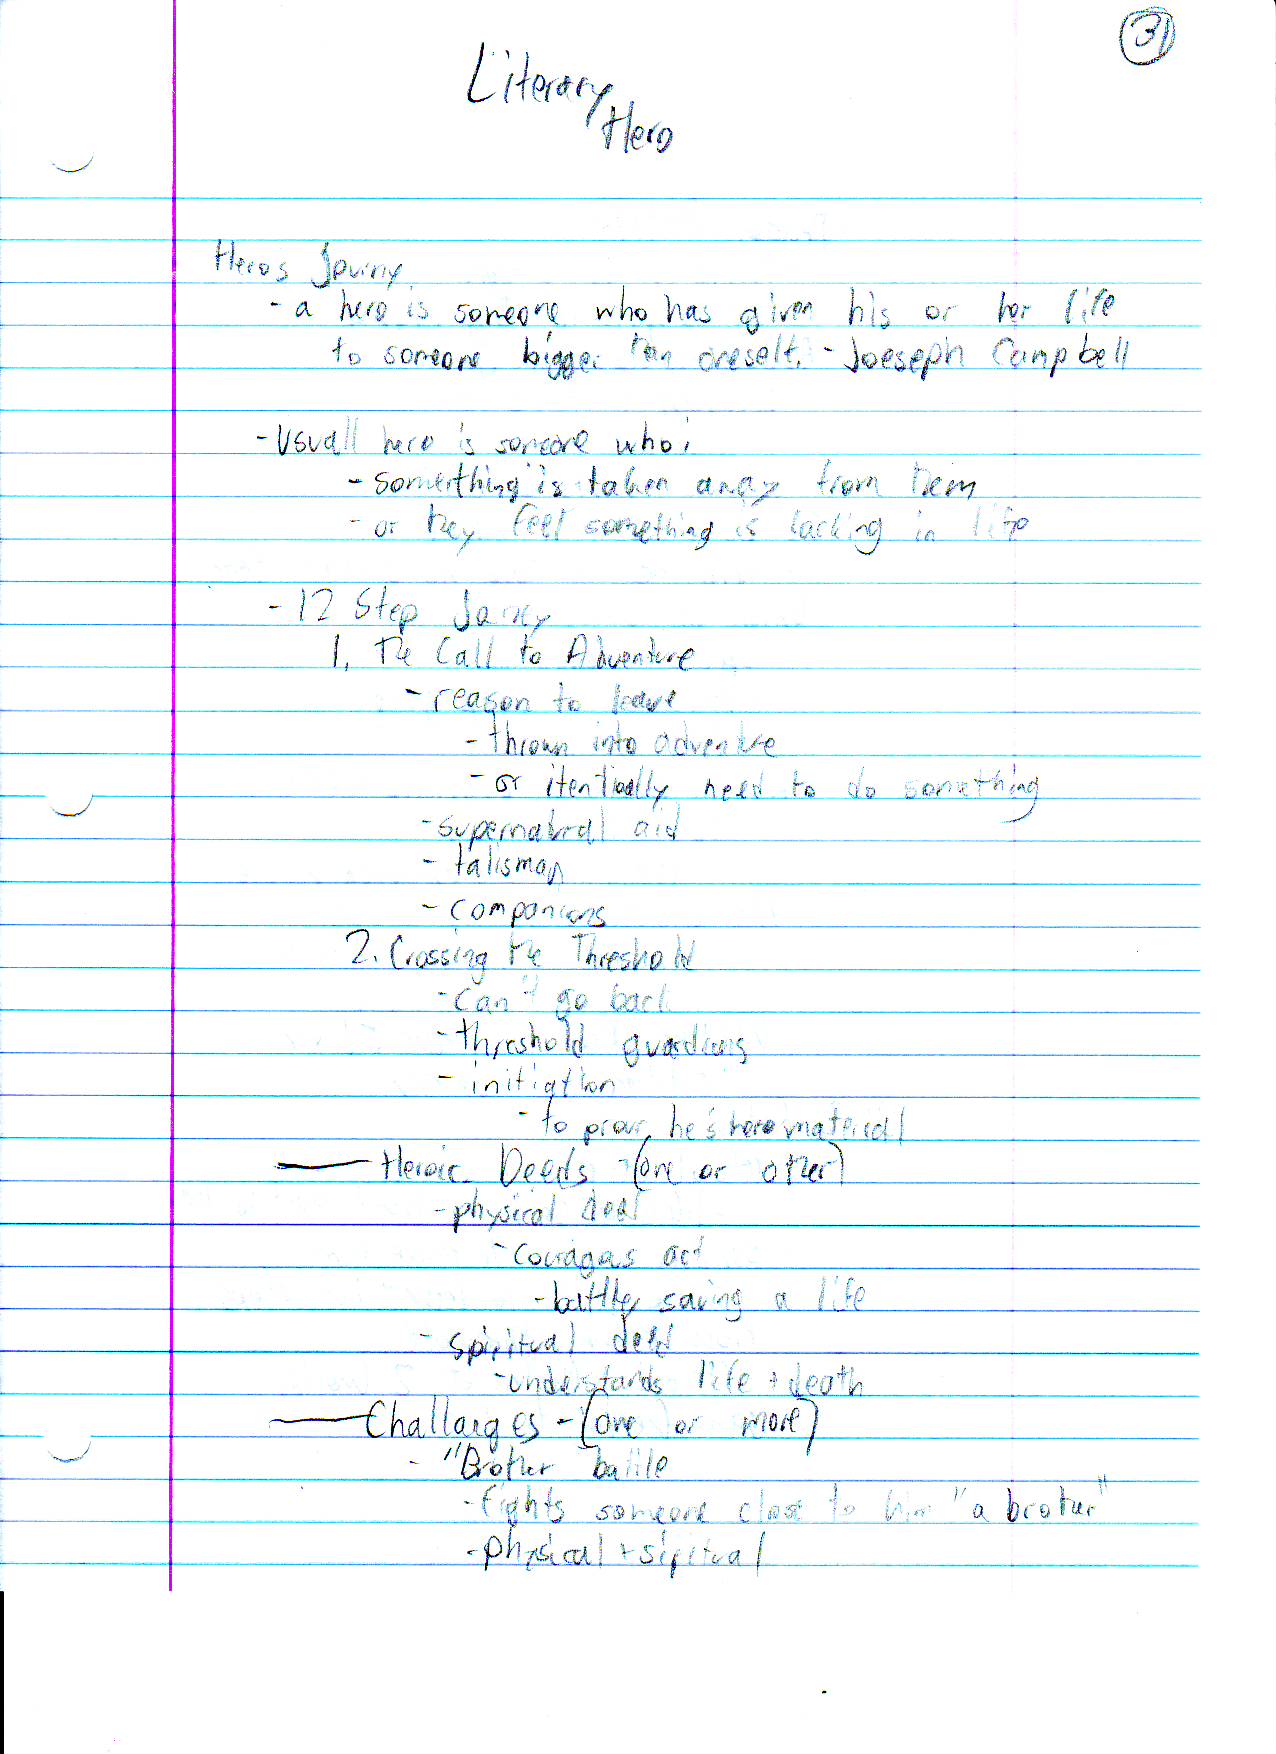 31
Literary
Hero
Heros Journy
- a hero is someone who has given his or her life
to someone bigger than oneself. - Joeseph Campbell
- Usuall hero is someone who:
- somerthing is taken away from them
- or they feel something is lacking in life
- 12 Step Jorney
1. The Call to Adventure
- reason to leave
- thrown into adventure
- or itentially need to do something
- supernatural aid
- talisman
- companions
2. Crossing the Threshold
- can't go back
- threshold guardians
- initiation
- to prove he's hero material
- Heroic Deeds - (one or other)
- physical deed
- couragas act
- battle, saving a life
- spiritual deed
- understands life + death
- Challanges - (one or more)
- "Brother battle
- fights someone close to him "a brother"
- physical + sipitual